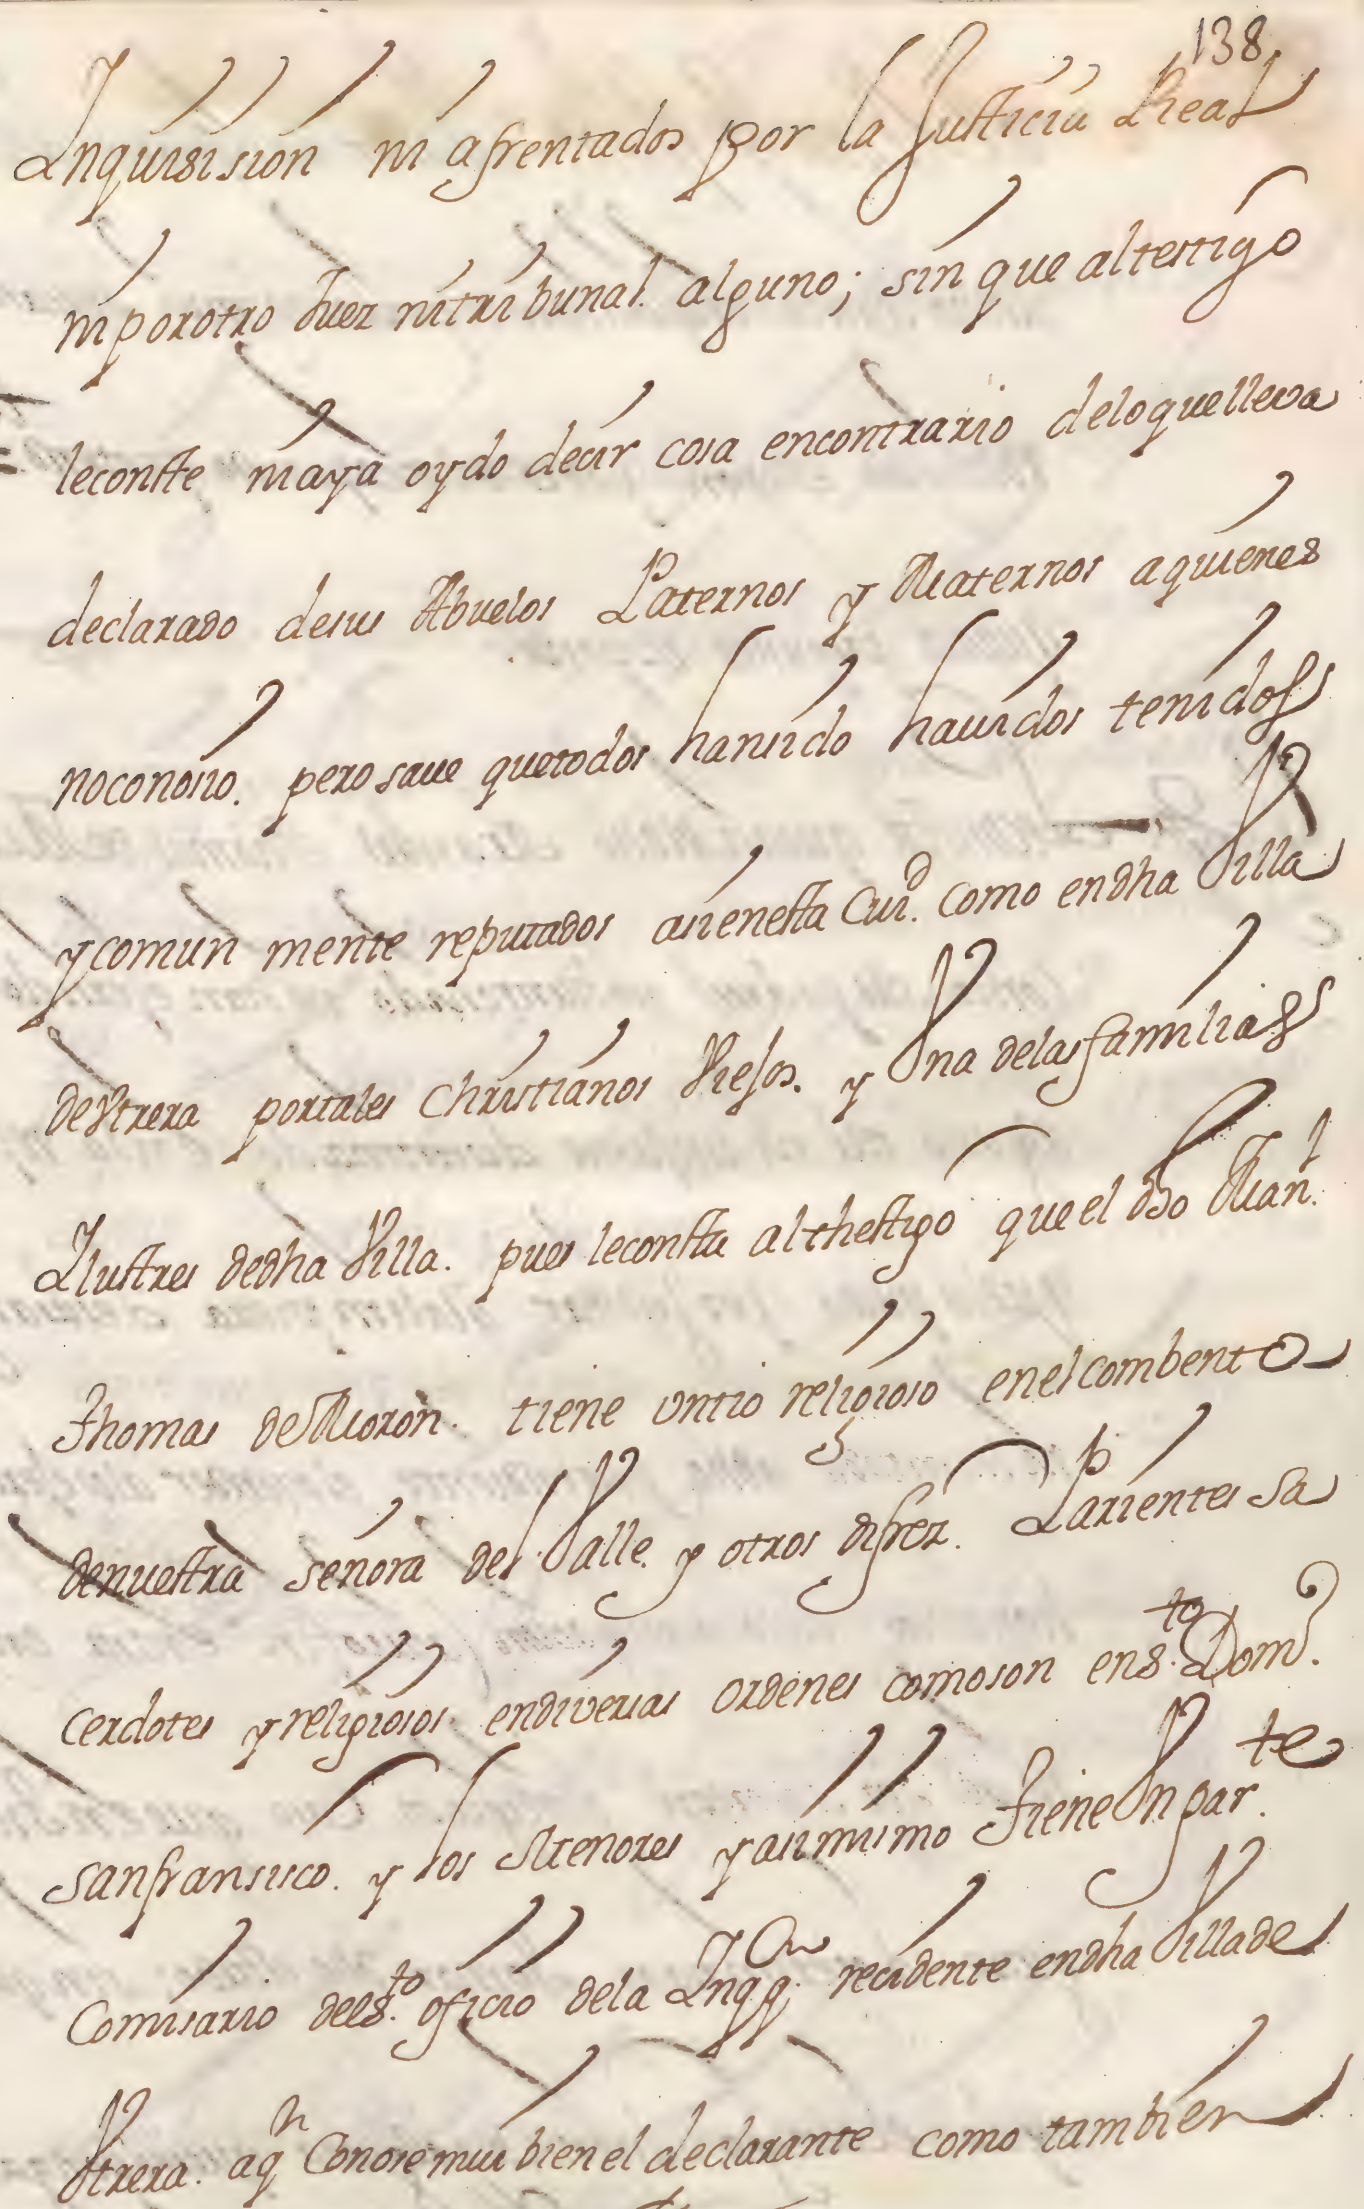 138
Inquisision ni afrentados por la Justicia Real
niporotro Juez nitribunal. alguno; sin que altestigo
leconste niaya oydo decir cosa encontrario deloquelleva
declarado desus Abuelos Paternos y Maternos aquienes
noconosio. pero save quetodos hansido havidos tenidos
ycomun mente reputados asienesta Ciud. como endha Villa
deVtrera portales Christianos Viejos. y Vna delas familias
Ilustres dedha Villa. pues leconsta althestigo que el dho Man.l
Thomas deMoron. tiene vntio religioso enelcombento
denuestra señora del Valle. y otros difrez. Parientes Sa
cerdotes y religiosos endiversas ordenes comoson ens.to Dom.o
sanfransisco. y los Menores yasimismo TieneVnpar.te
Comisario dees.to oficio dela Inqq.on recidente endha Villade
Vtrera. aq.n Conose mui bien el declarante como tambien